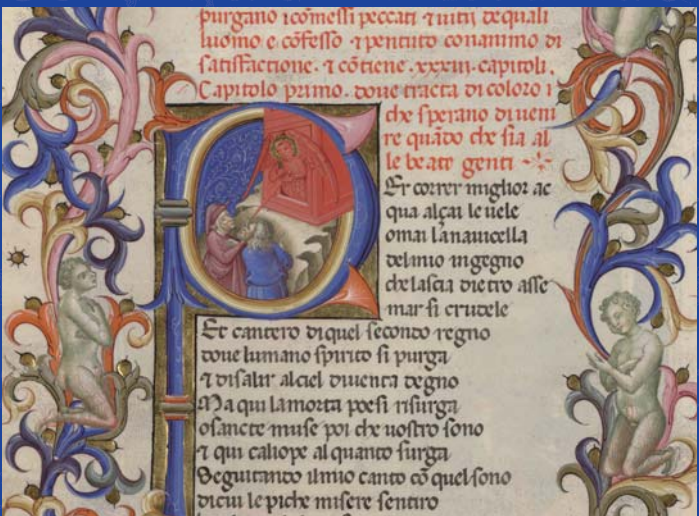 purgano i cōmessi peccati ⁊ uitij de quali
luomo e cōfesso ⁊ pentuto con animo di
satisfactione. ⁊ cōtiene. xxxiii. capitoli.
Capitolo primo. doue tracta di coloro i
che sperano di ueni
re quādo che sia al
le beate genti
Er correr miglior ac
qua alçai le uele
omai la nauicella
del mio ingegno
che lascia dietro asse
mar si crudele
Et cantero di quel secondo regno
doue lumano spirito si purga
⁊ di salir al ciel diuenta degno
Ma qui la morta poesi risurga
o sancte muse poi che uostro sono
⁊ qui caliope al quanto surga
Seguitando il mio canto cō quel sono
di cui le piche misere sentiro